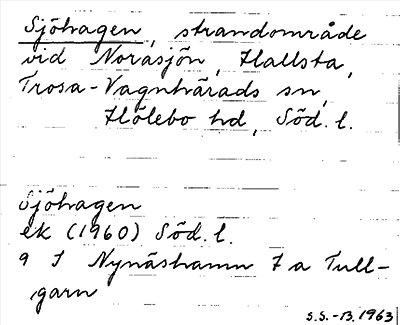 Sjöhagen, strandområde
vid Norasjön, Hallsta,
Trosa-Vagnhärads sn,
Hölebo hd, Söd. l.
Sjöhagen
ek (1960) Söd. l.
9 I Nynäshamn 7 a Tull-
garn
S.S.-B. 1963